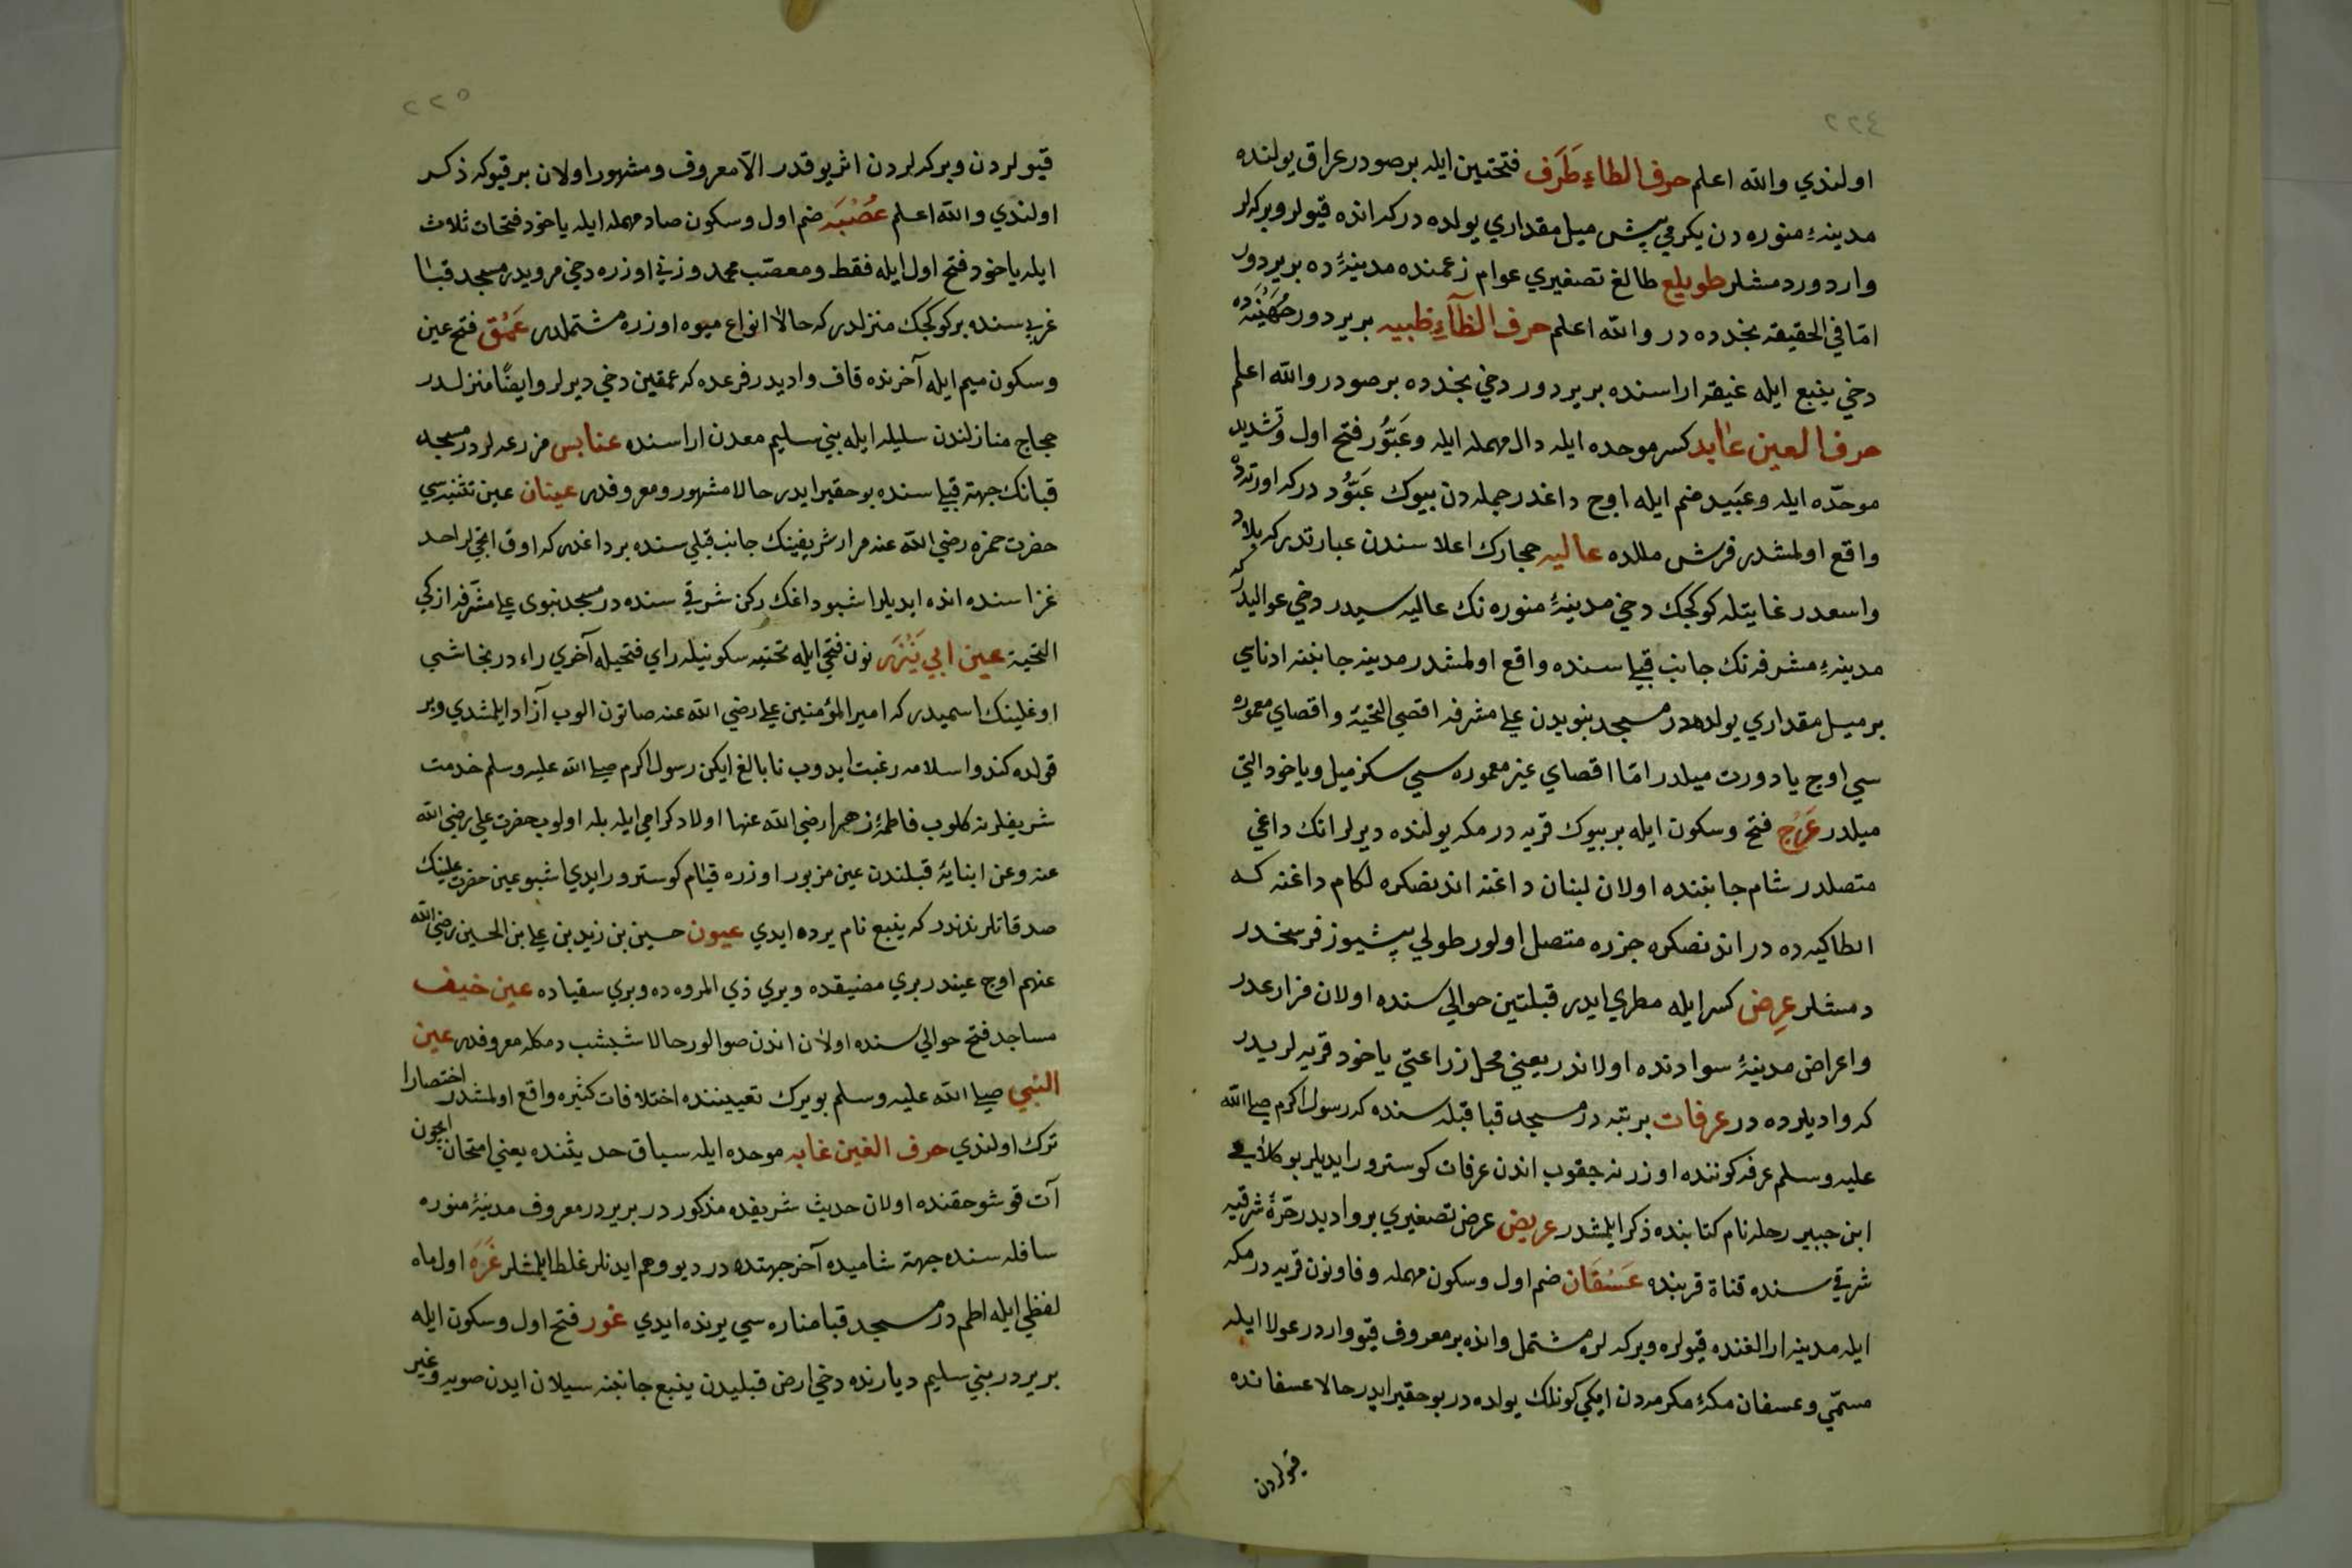 ٢٢٤
اولندي والله اعلم حرف الطاء طَرَف فتحتين ايله برصودر عراق يولنده
مدينهٔ منوره دن يكرمي بش ميل مقداري يولده در كه انده قيولر وبركه لر
واردور دمشلر طويلع طالع تصغيري عوام زعمنده مدينهٔ ده بر يردور
امّا في الحقيقه نجدده در والله اعلم حرف الظآء ظبيه بر يردور جُهَيْنَه ده
دخي ينبع ايله غيقه اراسنده بر يردور دخي نجدده برصودر والله اعلم
حرف العين عابد كسر موحده ايله دال مهمله ايله وعَبَّوُد فتح اول وتشديد
موحدّه ايله وعبَيد ضم ايله اوج داغدر جمله دن بيوك عَبَّوُد در كه اورته ده
واقع اولمشدر فرش مللده عاليه حجازك اعلا سندن عبارتدر كه بلاد
واسعدر غايتله كوكجك دخي مدينهٔ منوره نك عاليه سيدر دخي عواليدر كه
مدينهٔ مشرفه نك جانب قبلي سنده واقع اولمشدر مدينه جانبنه ادناي
بر ميل مقداري يولده در مسجد نبويدن علي مشرفه اقصي التحية واقصاي معموره
سي اوج يا دورت ميلدر امّا اقصاي غير معموره سي سكز ميل وياخود التي
ميلدر عَرْج فتح وسكون ايله بر بيوك قريه در مكه يولنده ديرلر انك داغي
متصلدر شام جانبنده اولان لبنان داغنه اندنصكره لكام داغنه كه
انطاكيه ده در اندنصكره جزره متصل اولور طولي بشيوز فرسخدر
دمشلر عِرض كسر ايله مطري ايدر قبلتين حوالي سنده اولان مزارعدر
واعراض مدينهٔ سوادنده اولاندر يعني محل زراعتي ياخود قريه لريدر
كه واديلرده در عرفات بر تپه در مسجد قبا قبله سنده كه رسول اكرم صلي الله
عليه وسلم عرفه كوننده اوزرنه جقوب اندن عرفات كوسترور ايديلر بو كلامي
ابن جبير رحله نام كتابنده ذكر ايلمشدر عريض عرض تصغيري بر واديدر حرّهٔ شرقيه
شرقي سنده قناة قربنده عَسْفَان ضم اول وسكون مهمله وفا ونون قريه در مكه
ايله مدينه ارالغنده قيولره وبركه لره مشتمل وانده بر معروف قيو واردر عولا ايله
مسمّي وعسفان مكهٔ مكرمه دن ايكي كونلك يولده در بو حقير ايدر حالا عسفانده
قيولردن
٢٢٥
قيولردن وبركه لردن اثر يوقدر الاّ معروف ومشهور اولان بر قيو كه ذكر
اولندي والله اعلم عُصْبَه ضم اول وسكون صاد مهمله ايله ياخود فتحات ثلاث
ايله ياخود فتح اول ايله فقط ومعصّب محمد وزني اوزره دخي مرويدر مسجد قبا
غربي سنده بر كوكجك منزلدر كه حالا انواع ميوه اوزره مشتملدر عَمْق فتح عين
وسكون ميم ايله آخرنده قاف واديدر فرعده كه عمقين دخي ديرلر وايضًا منزلدر
حجاج منازلندن سليله ايله بني سليم معدن اراسنده عنابس مزرعه لردر مسجد
قبانك جهة قبلي سنده بو حقير ايدر حالا مشهور ومعروفدر عينان عين تثنيه سي
حضرت حمزه رضي الله عنه مزار شريفينك جانب قبلي سنده بر داغدر كه اوق اتجيلر احد
غزاسنده انده ايديلر اشبو داغك ركن شرقي سنده در مسجد نبوي علي مشرفه ازكي
التحية عين ابي نَيْزَر نون فتحي ايله تحتيه سكونيله زاي فتحيله آخري راء در نجاشي
اوغلينك اسميدر كه امير المؤمنين علي رضي الله عنه صاتون الوب آزاد ايلمشدي وبر
قولده كندو اسلامه رغبت ايدوب نا بالغ ايكن رسول اكرم صلي الله عليه وسلم خدمت
شريفلرنه كلوب فاطمهٔ زهرا رضي الله عنها اولاد كرامي ايله بله اولوب حضرت علي رضي الله
عنه وعن ابنائه قبلندن عين مزبور اوزره قيام كوسترور ايدي اشبو عين حضرت علينك
صدقاتلرندندر كه ينبع نام يرده ايدي عيون حسين بن زيد بن علي بن الحسين رضي الله
عنهم اوج عيندر بري مضيقده وبري ذي المروه ده وبري سقياده عين خيف
مساجد فتح حوالي سنده اولان اندن صوالور حالا شبشب دمكله معروفدر عين
النبي صلي الله عليه وسلم بو يرك تعييننده اختلافات كثيره واقع اولمشدر اختصارا
ترك اولندي حرف الغين غابه موحده ايله سباق حديثنده يعني امتحان ايچون
آت قوشوحقنده اولان حديث شريفده مذكور در بر يردر معروف مدينهٔ منوره
سافله سنده جهة شاميده آخر جهتده در ديو وهم ايدنلر غلط ايلمشلر غَرَه اول ماه
لفظي ايله اطم در مسجد قبا مناره سي يرنده ايدي غور فتح اول وسكون ايله
بر يردر بني سليم ديارنده دخي ارض قبليدن ينبع جانبنه سيلان ايدن صويه وغير